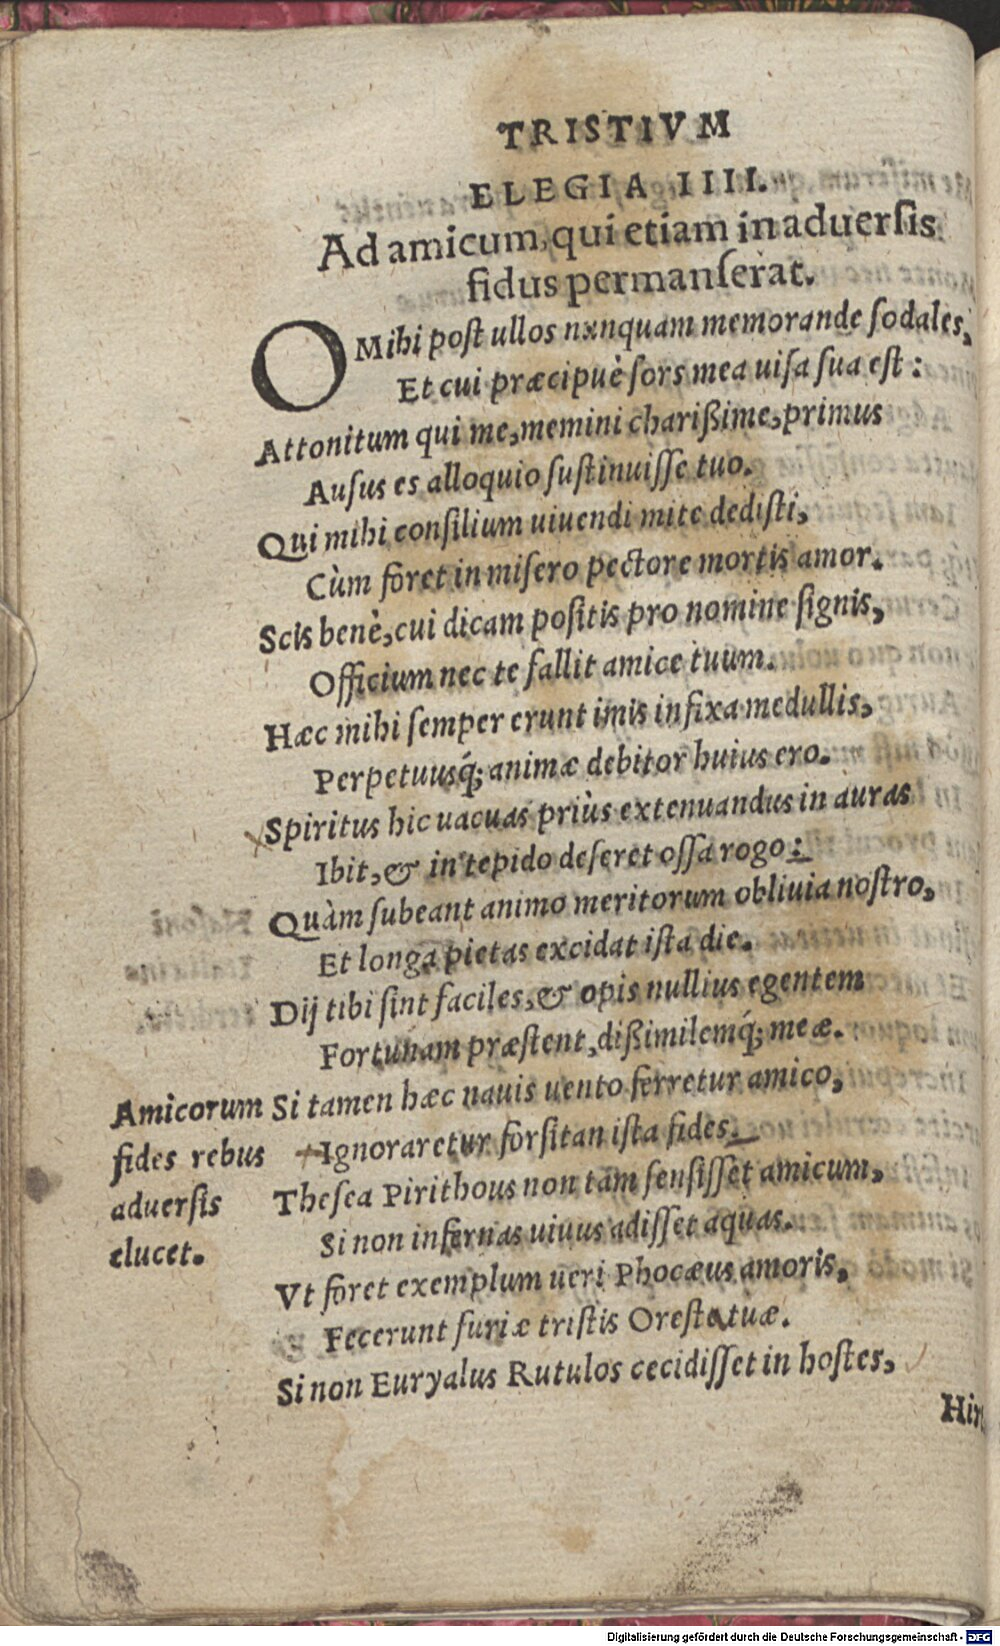 TRISTIVM
ELEGIA IIII.
Ad amicum, qui etiam in aduersis
fidus permanserat.
O Mihi post ullos nunquam memorande sodales,
Et cui præcipuè sors mea uisa sua est:
Attonitum qui me, memini charißime, primus
Ausus es alloquio sustinuisse tuo.
Qui mihi consilium uiuendi mite dedisti,
Cùm foret in misero pectore mortis amor.
Scis benè, cui dicam positis pro nomine signis,
Officium nec te fallit amice tuum.
Hæc mihi semper erunt imis infixa medullis,
Perpetuusq́; animæ debitor huius ero.
Spiritus hic uacuas priùs extenuandus in auras
Ibit, & in tepido deseret ossa rogo:
Quàm subeant animo meritorum obliuia nostro,
Et longa pietas excidat ista die.
Dij tibi sint faciles, & opis nullius egentem
Fortunam præstent, dißimilemq́; meæ.
Si tamen hæc nauis uento ferretur amico,
Ignoraretur forsitan ista fides.
Thesea Pirithous non tam sensisset amicum,
Si non infernas uiuus adisset aquas.
Vt foret exemplum ueri Phocæus amoris,
Fecerunt furiæ tristis Oresta tuæ.
Si non Euryalus Rutulos cecidisset in hostes,
Amicorum
fides rebus
aduersis
elucet.
Digitalisierung gefördert durch die Deutsche Forschungsgemeinschaft - DFG